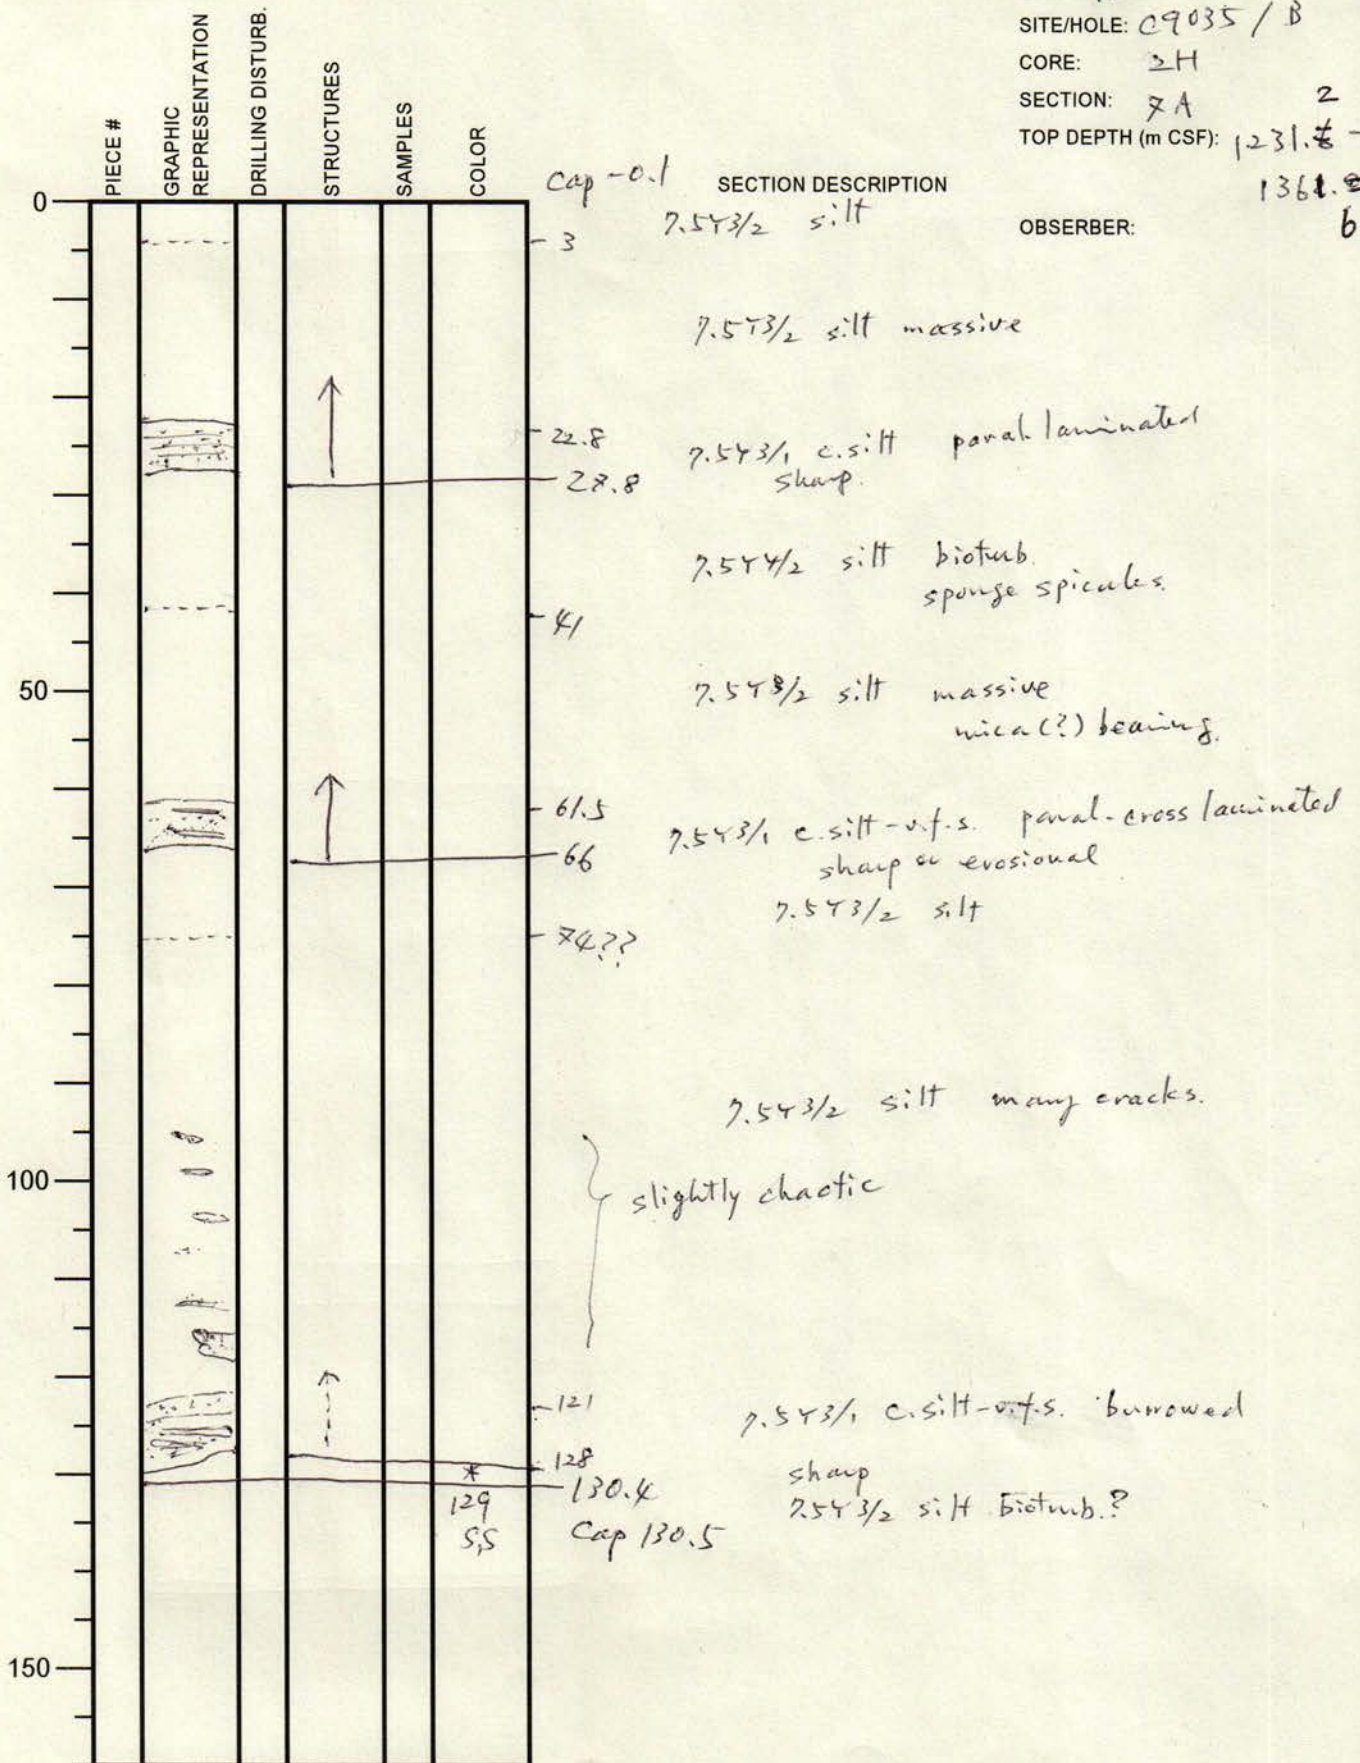 SITE/HOLE: C9035 / B
CORE: 2H
SECTION: 7A
2
TOP DEPTH (m CSF): 1231. -
1361.
OBSERBER:
6
PIECE #
GRAPHIC
REPRESENTATION
DRILLING DISTURB.
STRUCTURES
SAMPLES
COLOR
Cap -0.1
SECTION DESCRIPTION
0
7.5Y3/2 silt
3
7.5Y3/2 silt massive
22.8
7.5Y3/1 c.silt paral. laminated
27.8
sharp.
7.5Y4/2 silt bioturb.
sponge spicules.
41
50
7.5Y3/2 silt massive
mica(?) bearing.
61.5
7.5Y3/1 c.silt-v.f.s. paral-cross laminated
66
sharp or erosional
7.5Y3/2 silt
74??
7.5Y3/2 silt many cracks.
100
slightly chaotic
121
7.5Y3/1 c.silt-v.f.s. burrowed
128
sharp
*
130.4
129
7.5Y3/2 silt bioturb.?
S,S
Cap 130.5
150